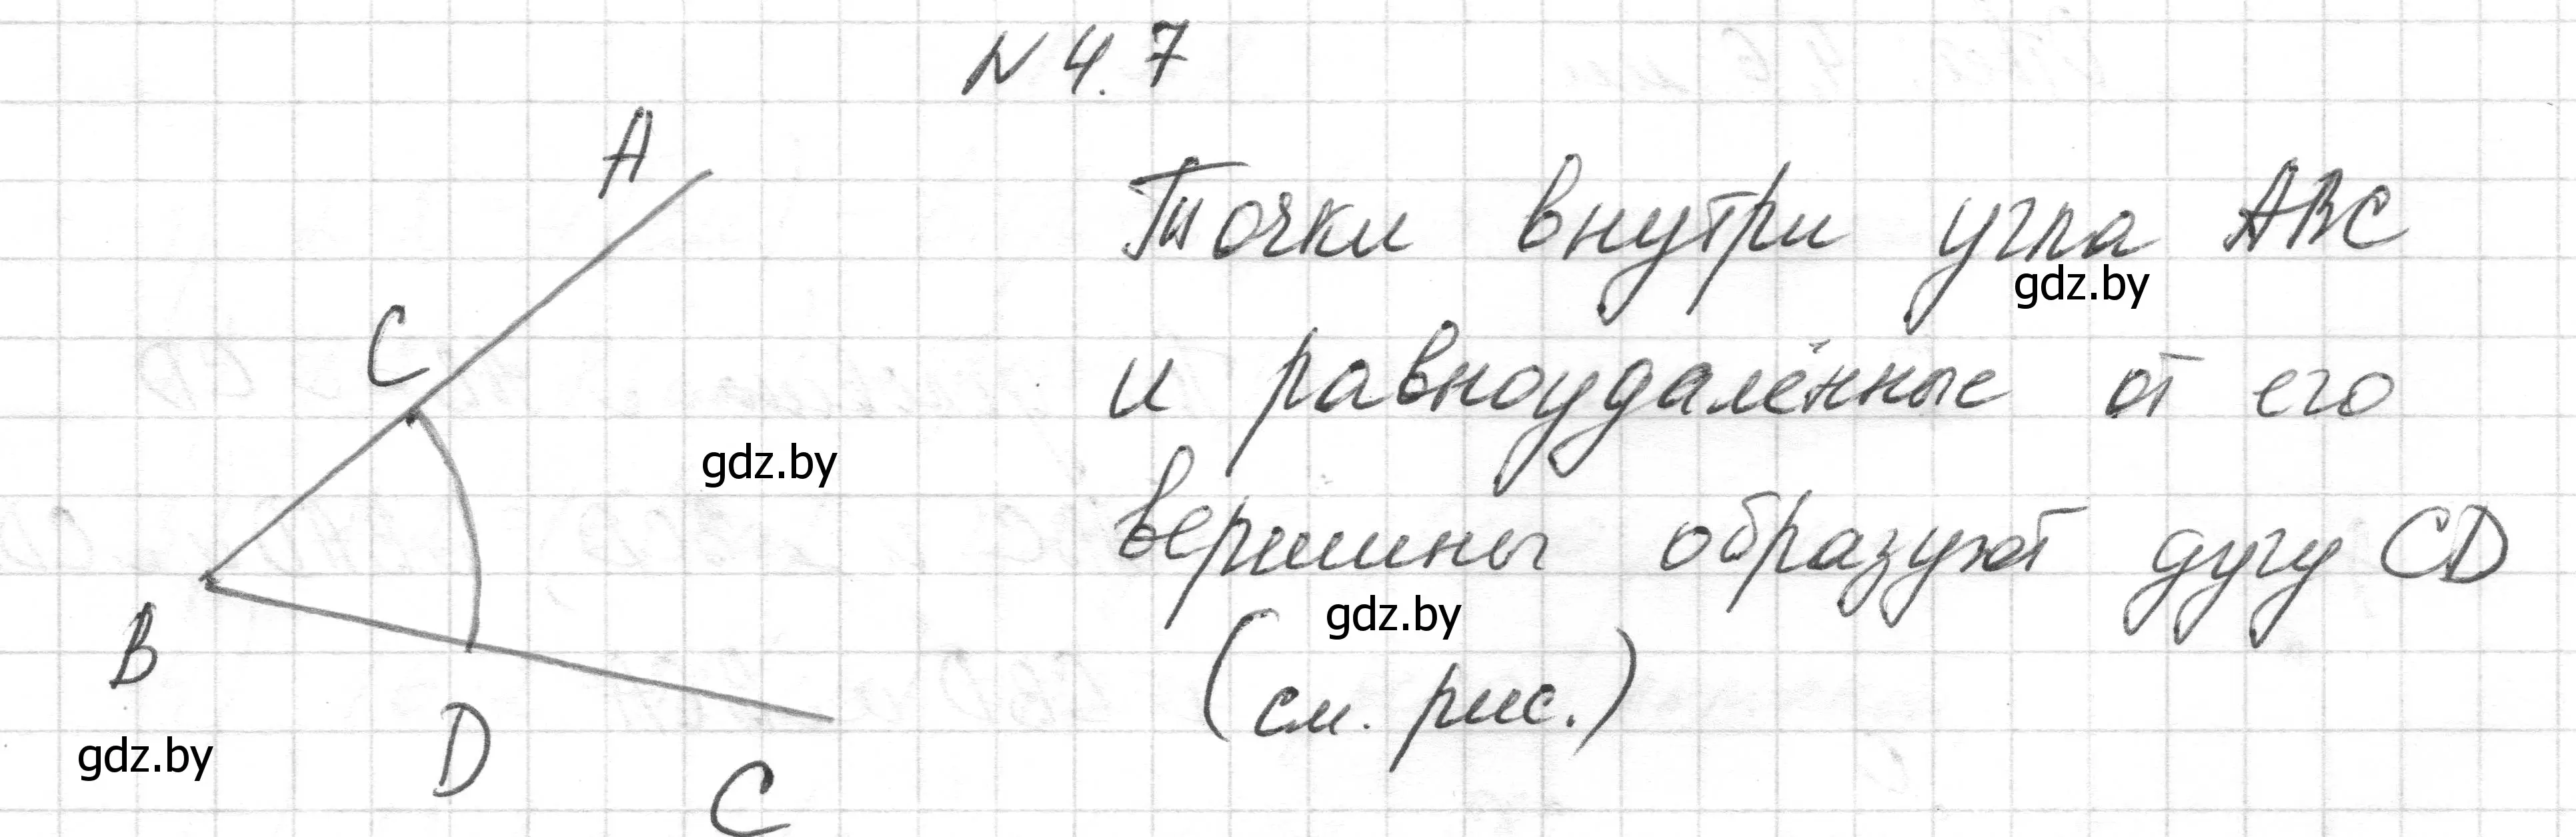 N 4.7
A
Точки внутри угла ABC
gdz.by
C
и равноудалённые от его
gdz.by
вершины образуют дугу CD
gdz.by
B
(см. рис.)
D
gdz.by
C